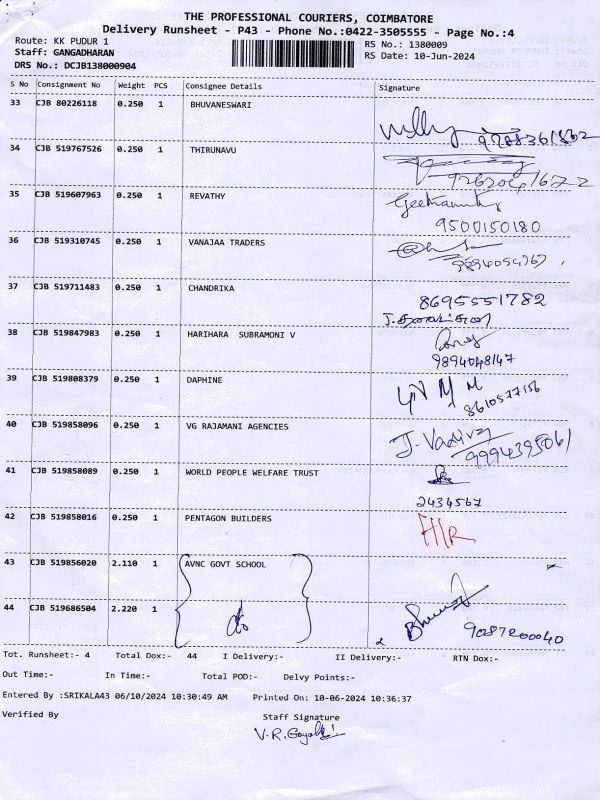 THE PROFESSIONAL COURIERS, COIMBATORE
Delivery Runsheet - P43 - Phone No.:0422-3505555 - Page No.:4
Route: KK PUDUR 1
Staff: GANGADHARAN
DRS No.: DCJB138000904
RS No.: 1380009
RS Date: 10-Jun-2024
S No Consignment No Weight PCS Consignee Details Signature
33 CJB 80226118 0.250 1 BHUVANESWARI
34 CJB 519767526 0.250 1 THIRUNAVU
35 CJB 519607963 0.250 1 REVATHY
9500150180
36 CJB 519310745 0.250 1 VANAJAA TRADERS
37 CJB 519711483 0.250 1 CHANDRIKA
8695551782
38 CJB 519847983 0.250 1 HARIHARA SUBRAMONI V
9894048147
39 CJB 519808379 0.250 1 DAPHINE
8610577156
40 CJB 519858096 0.250 1 VG RAJAMANI AGENCIES
9994395061
41 CJB 519858089 0.250 1 WORLD PEOPLE WELFARE TRUST
2434567
42 CJB 519858016 0.250 1 PENTAGON BUILDERS
43 CJB 519856020 2.110 1 AVNC GOVT SCHOOL
44 CJB 519686504 2.220 1
9087200040
Tot. Runsheet:- 4 Total Dox:- 44 I Delivery:- II Delivery:- RTN Dox:-
Out Time:- In Time:- Total POD:- Delvy Points:-
Entered By :SRIKALA43 06/10/2024 10:30:49 AM Printed On: 10-06-2024 10:36:37
Verified By Staff Signature